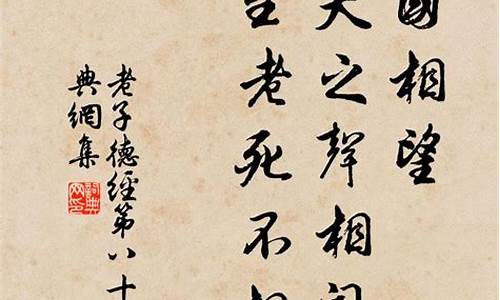 國相望
犬之聲相聞
至老死不相
老子德經第八十
典網集